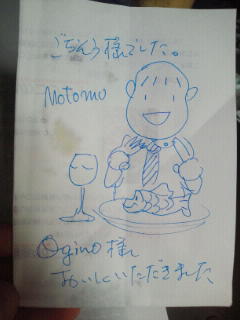 ごちそう様でした。
Motomu
Ogino様
おいしくいただきました